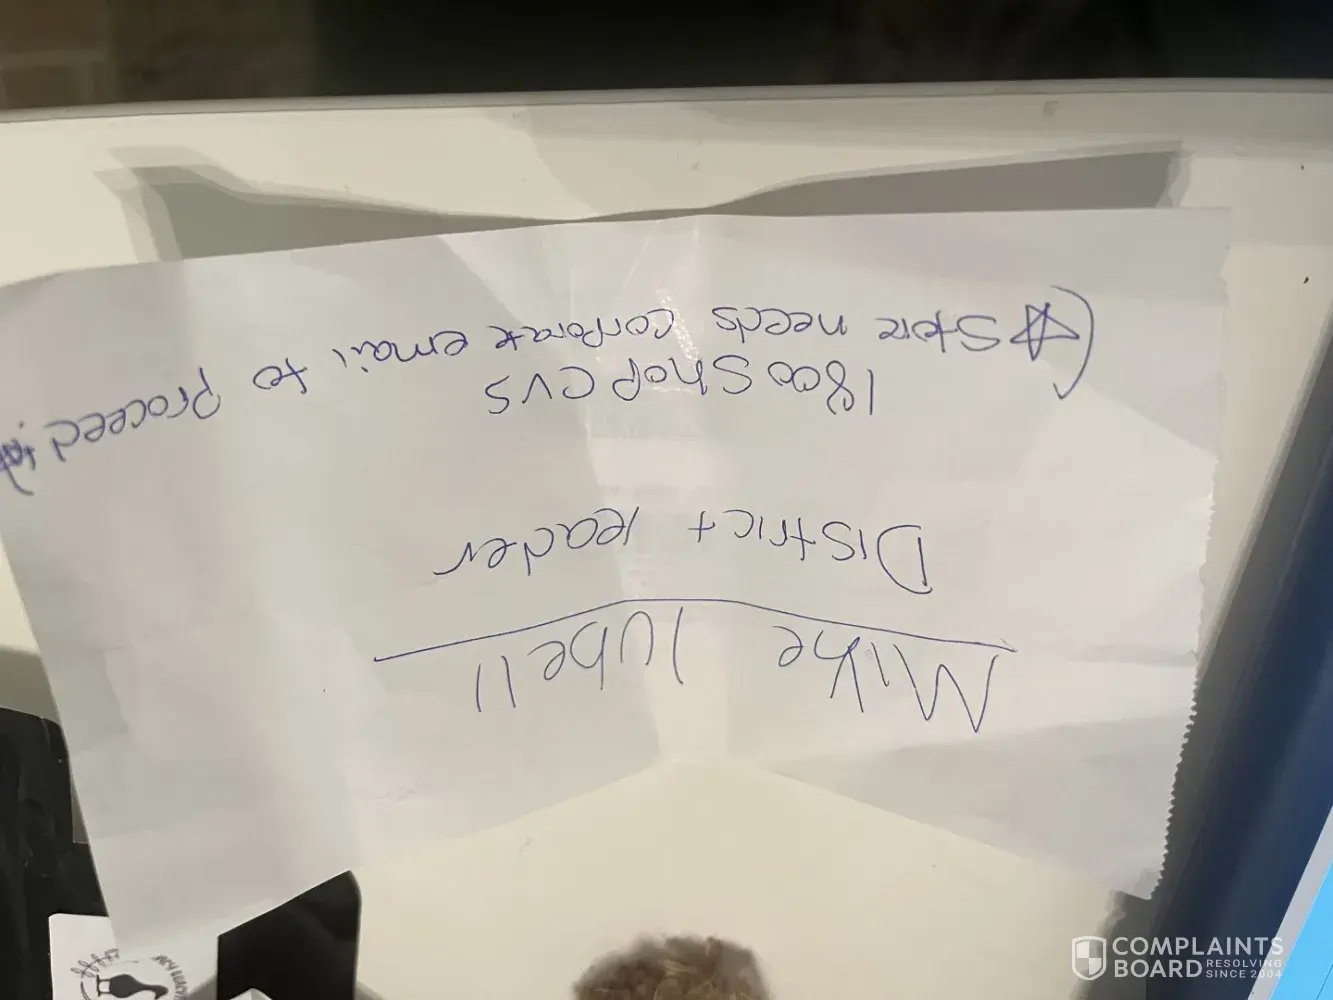 Mike lubell
District leader
1800 Shop CVS
(☆ Store needs corporate email to proceed ☆)
COMPLAINTS
BOARD RESOLVING
SINCE 2004